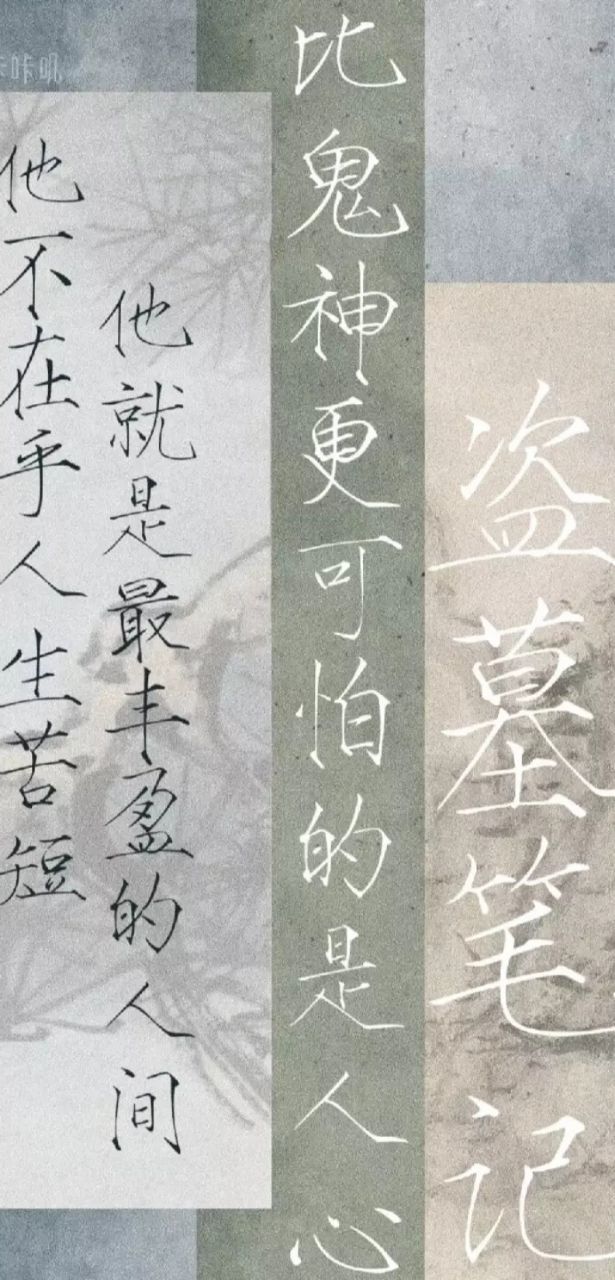 盗墓笔记
比鬼神更可怕的是人心
他不在乎人生苦短
他就是最丰盈的人间